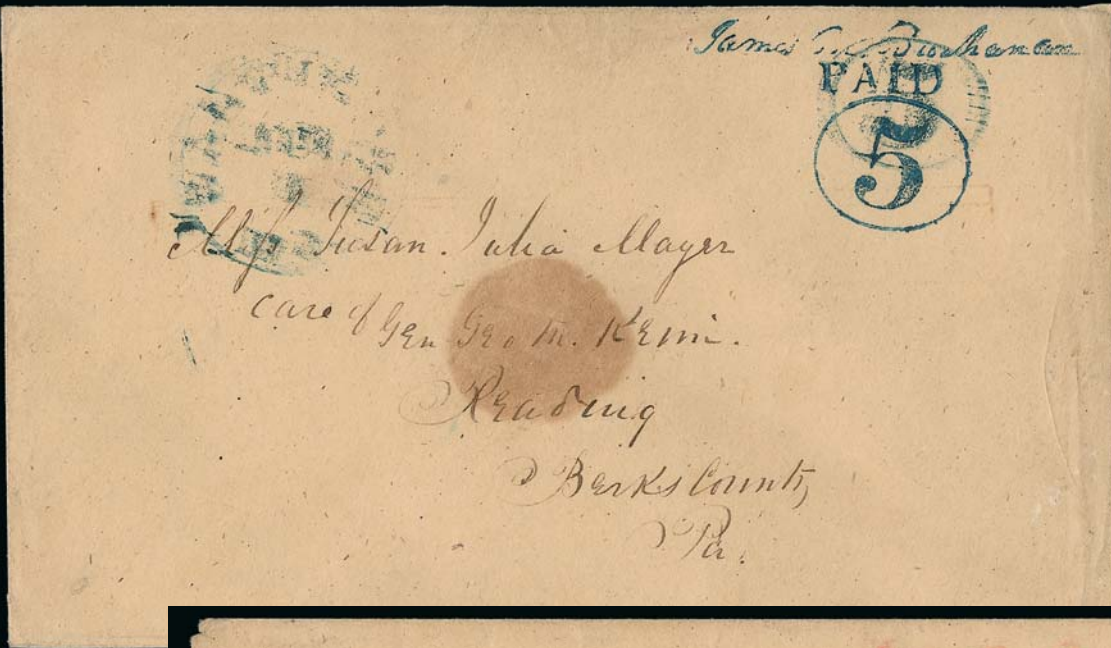 James M. Buchanan
PAID
5
Miss Susan. Julia Mayer
care of Gen Geo M. Keim.
Reading
Berks County
Pa.